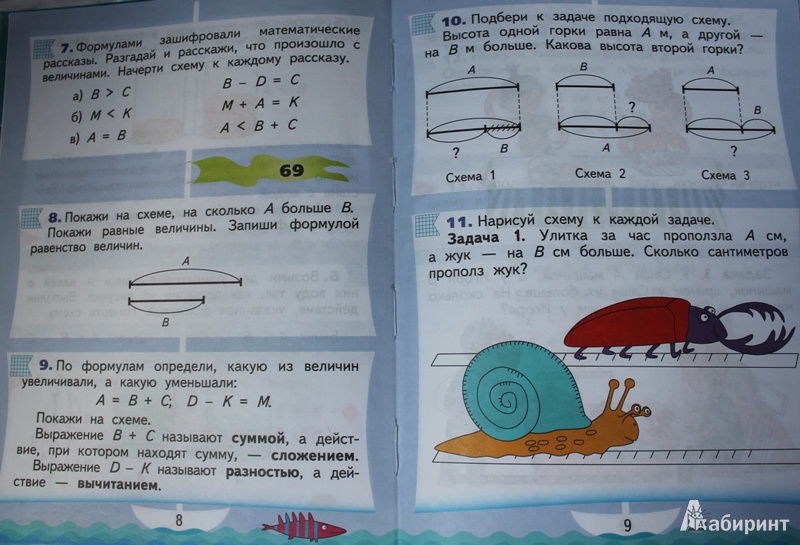 7. Формулами зашифровали математические
рассказы. Разгадай и расскажи, что произошло с
величинами. Начерти схему к каждому рассказу.
а) B > C B – D = C
б) M < K M + A = K
в) A = B A < B + C
69
8. Покажи на схеме, на сколько A больше B.
Покажи равные величины. Запиши формулой
равенство величин.
A
B
9. По формулам определи, какую из величин
увеличивали, а какую уменьшали:
A = B + C; D – K = M.
Покажи на схеме.
Выражение B + C называют суммой, а дейст-
вие, при котором находят сумму, — сложением.
Выражение D – K называют разностью, а дей-
ствие — вычитанием.
8
10. Подбери к задаче подходящую схему.
Высота одной горки равна A м, а другой —
на B м больше. Какова высота второй горки?
A B A
? B
? B A ?
Схема 1 Схема 2 Схема 3
11. Нарисуй схему к каждой задаче.
Задача 1. Улитка за час проползла A см,
а жук — на B см больше. Сколько сантиметров
прополз жук?
9
Лабиринт